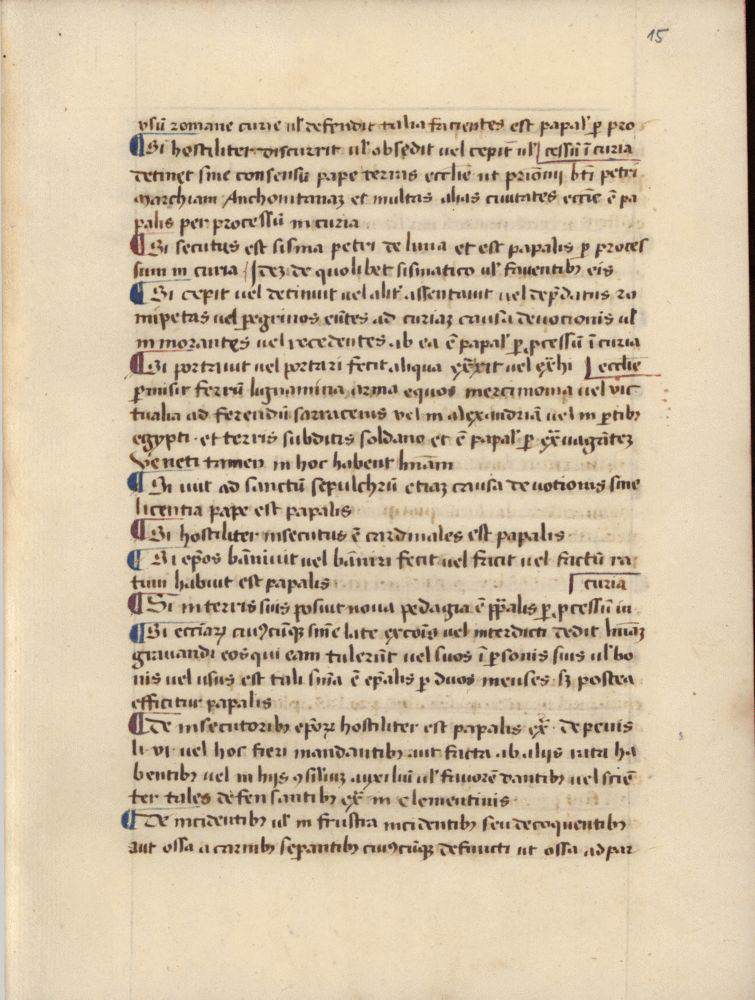 15
vsū romane curie ul' defendit talia facientes est papal' p pro
Si hostiliter discurrit ul' obsedit uel cepit ul' cessū ī curia
detinet sine consensu pape terras ecclie ut btī petri
marchiam Anchonitanaz et multas alias ciuitates eccie ē pa
palis per processū in curia
Si secutus est sisma petri de luna et est papalis p proces
sum in curia Idez de quolibet sismatico ul' fauentibꝫ eis
Si cepit uel detinuit uel alit' uel ro
mipetas uel pegrinos eūtes ad curiaz causa deuotionis ul'
inmorantes uel recedentes ab ea ē papal' p pcessū ī curia
Si portauit uel portari fecit aliqua uel ecclie
pmisit ferrū lignamina arma equos mercimonia uel vic
tualia ad ferendū sarracenis vel in alexandriā uel in ptibꝫ
egypti et terris subditis soldano et ē papal' p
Veneti tamen in hoc habent
Si iuit ad sanctū sepulchrū etiaz causa deuotionis sine
licentia pape est papalis
Si hostiliter insecutus ē cardinales est papalis
Si epōs bāniuit uel bāniri fecit uel fecit uel factū ra
tum habuit est papalis curia
Si in terris suis posuit noua pedagia ē ppalis p pcessū in
Si sine late uel interdicti dedit
grauandi eos qui eam tulerūt uel suos ī psonis suis ul' bo
nis uel usus est tali ē epalis p duos menses sꝫ postea
efficitur papalis
De insecutoribꝫ hostiliter est papalis ex̄ de penis
li vi uel hoc fieri mandantibꝫ aut facta ab alijs rata ha
bentibꝫ uel in hijs ꝯsiliuꝫ auxiliū ul' fauorē dantibꝫ uel sciē
ter tales defensantibꝫ ex̄ in clementinis
De incidentibꝫ ul' in frustra incidentibꝫ seu decoquentibꝫ
aut ossa a carnibꝫ sepantibꝫ defuncti ut ossa ad par